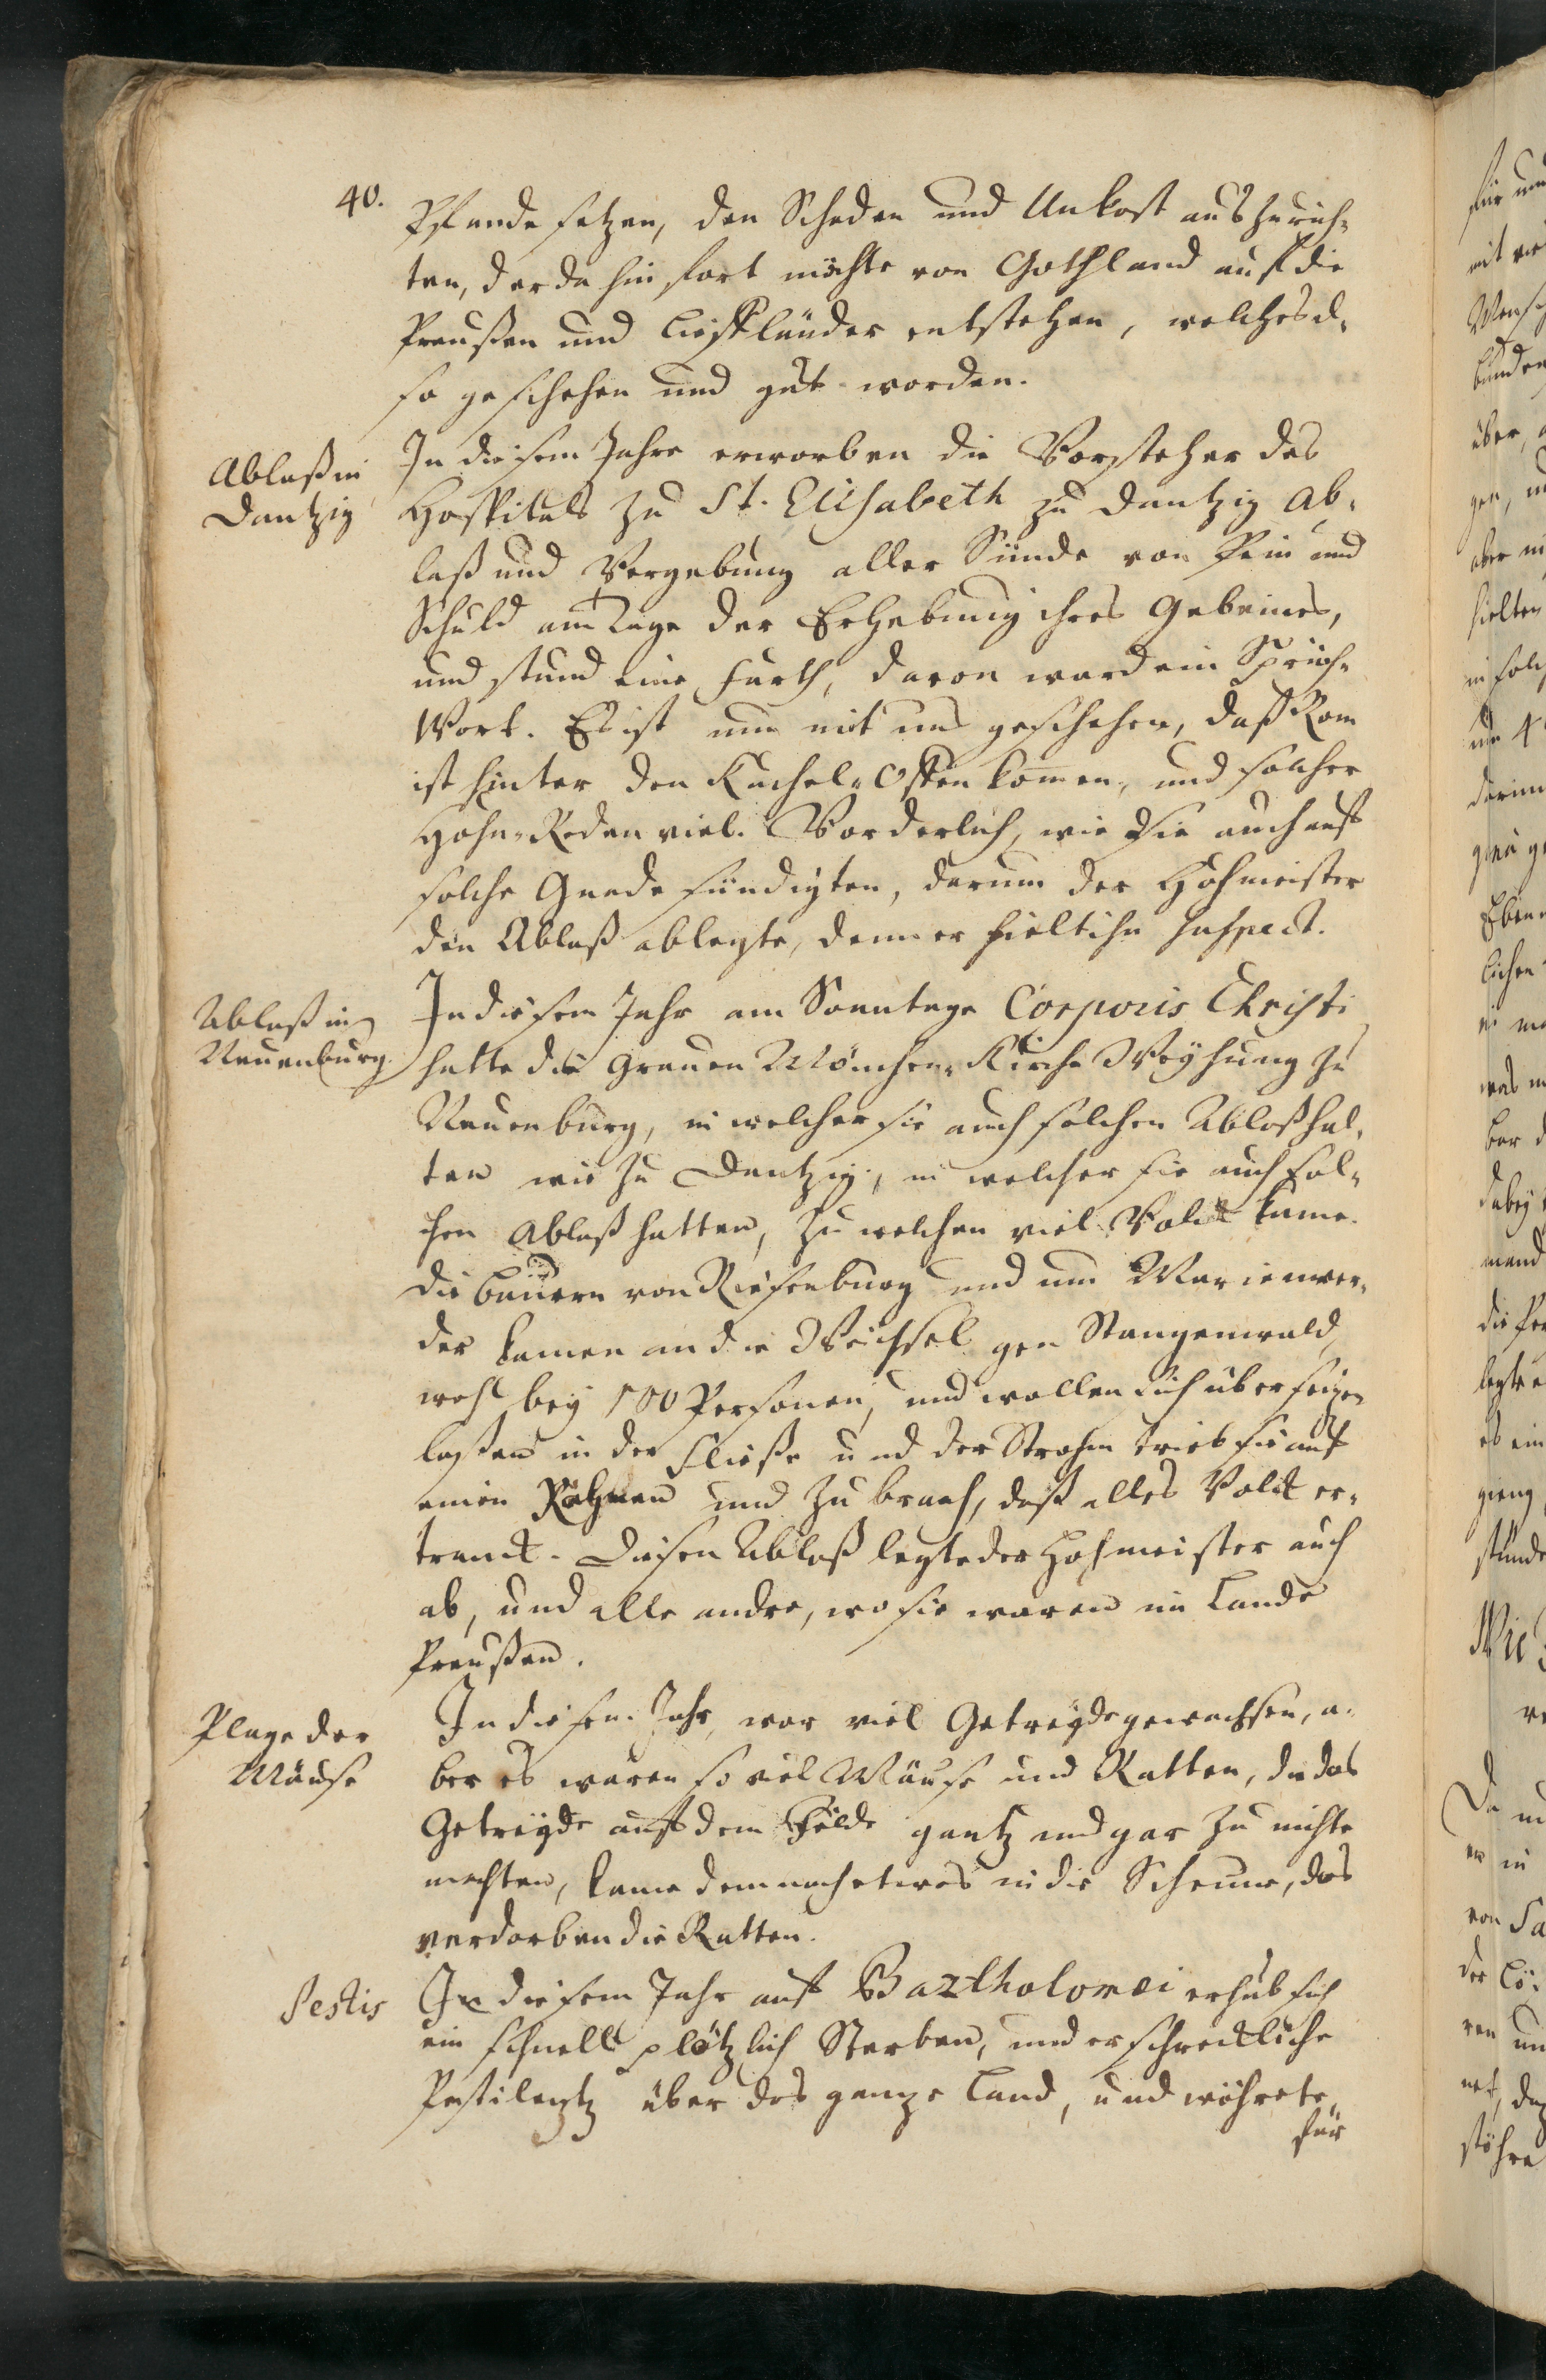 40.
Pfande setzen, den Schaden und Unkost auszurich-
ten, der da hinfort möchte von Gothland auf die
Preußen und Liefländer entstehen, welches al-
so geschehen und gut worden.
Ablaß in
Dantzig
In diesem Jahre erworben die Vorsteher des
Hospitals zu St. Elisabeth zu Dantzig Ab-
laß und Vergebung aller Sünde von Pein und
Schuld am Tage der Erhebung ihres Gebeines,
und stund eine Farth, davon ward ein Sprüch-
Wort. Es ist nun mit uns geschehen, daß Rom
ist hinter den Kachel-Offen kom̅en, und solcher
Hohn-Reden viel. Vorderlich, wie Sie auch auff
solche Gnade sündigten, darum der Hohmeister
den Ablaß ablegte, denn er hielt ihn suspect.
Ablaß in
Neuenburg.
In diesem Jahr am Sonntage Corporis Christi
hatte die Grauen Mönchen-Kirche Weyhung zu
Neuenburg, in welcher sie auch solchen Ablaß hal-
ten wie zu Dantzig, in welcher sie auch sol-
chen Ablaß hatten, zu welchen viel Volck kame.
die Bauern von Riesenburg und um Marienwer-
der kamen an die Weichsel gen Stangenwald,
wohl bey 100 Personen, und wollen sich über
laßen in der Fließe und der Strohm trieb sie auff
einen und zu brach, daß alles Volck er-
tranck. Diesen Ablaß legte der Hohmeister auch
ab, und alle andre, wo sie waren im Lande
Preußen.
Plage der
Mäuse
In diesem Jahr, war viel Getreyde gewachsen, a-
ber es waren so viel Mäuse und Ratten, die das
Getreyde auff dem Felde gantz und gar zu nichte
machten, kame dennoch etwas in die Scheune, das
verdorben die Ratten.
Pestis
In diesem Jahr auff Bartholomei erhub sich
ein schnell plötzlich Sterben, und erschreckliche
Pestilentz über das gantze Land, und währete
für